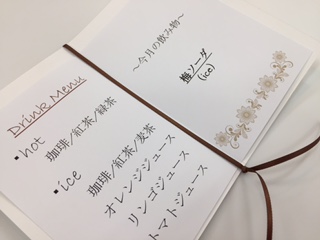 Drink Menu
▪hot
珈琲/紅茶/緑茶
▪ice
珈琲/紅茶/麦茶
オレンジジュース
リンゴジュース
トマトジュース
～今月の飲み物～
梅ソーダ
(ice)